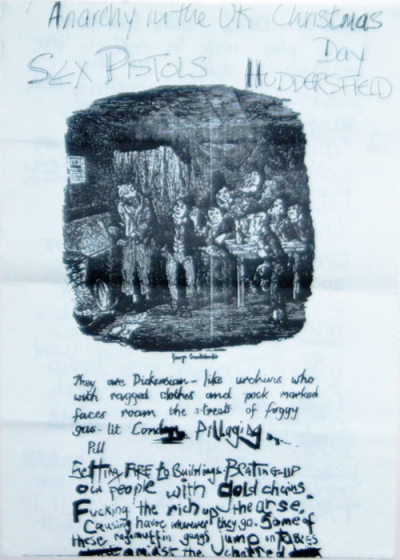 Anarchy in the UK Christmas
Day
SEX PISTOLS HUDDERSFIELD
George Cruikshank
They are Dickensian - like urchins who
with ragged clothes and pock marked
faces roam the streets of foggy
gas-lit London Pillaging
Pill
SETTING FIRE to Buildings BEATING UP
old people with Gold chains.
Fucking the rich up the arse.
Causing havoc wherever they go. Some of
these ragamuffin gangs jump on TABLES
amidst the charred